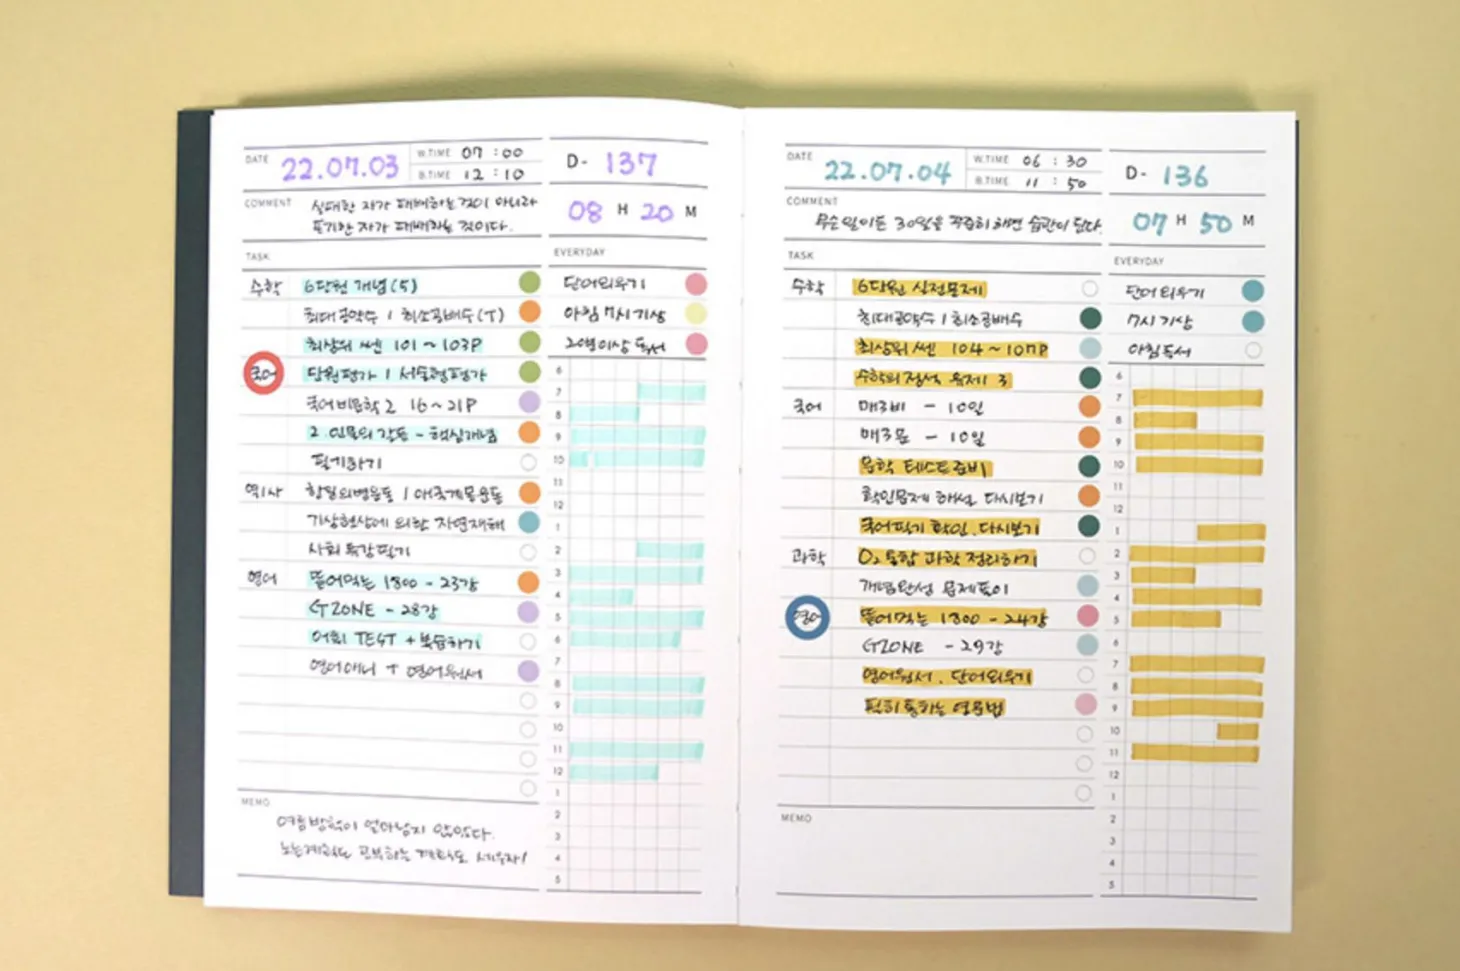 DATE 22.07.03 W.TIME 07 : 00 D- 137
B.TIME 12 : 10
COMMENT 실패한 자가 패배하는 것이 아니라
포기한 자가 패배하는 것이다.
08 H 20 M
TASK
수학 6단원 개념(5)
최대공약수 / 최소공배수(T)
최상위 쎈 101 ~ 103P
국어 단원평가 / 서술형평가
국어 비문학 2 16 ~ 21P
2. 인물의 갈등 - 핵심개념
필기하기
역사 항일의병운동 / 애국계몽운동
기상현상에 의한 자연재해
사회 특강필기
영어 뜯어먹는 1800 - 23강
GZONE - 28강
어휘 TEST + 복습하기
영어애니 + 영어원서
EVERYDAY
단어외우기
아침 7시 기상
2권이상 독서
6
7
8
9
10
11
12
1
2
3
4
5
6
7
8
9
10
11
12
1
2
3
4
5
MEMO
여름방학이 얼마남지 않았다.
노는계획도 공부하는 계획도 세우자!
DATE 22.07.04 W.TIME 06 : 30 D- 136
B.TIME 11 : 50
COMMENT
무슨일이든 30일을 꾸준히하면 습관이 된다.
07 H 50 M
TASK
수학 6단원 실전문제
최대공약수 / 최소공배수
최상위 쎈 104 ~ 107P
수학의 정석 유제 3
국어 매3비 - 10일
매3문 - 10일
문학 테스트 준비
확인문제 해설 다시보기
국어필기 확인. 다시보기
과학 O₂ 통합 과학 정리하기
개념완성 문제풀이
영어 뜯어먹는 1800 - 24강
GZONE - 29강
영어원서. 단어외우기
특히 통하는 영문법
EVERYDAY
단어외우기
7시 기상
아침독서
6
7
8
9
10
11
12
1
2
3
4
5
6
7
8
9
10
11
12
1
2
3
4
5
MEMO